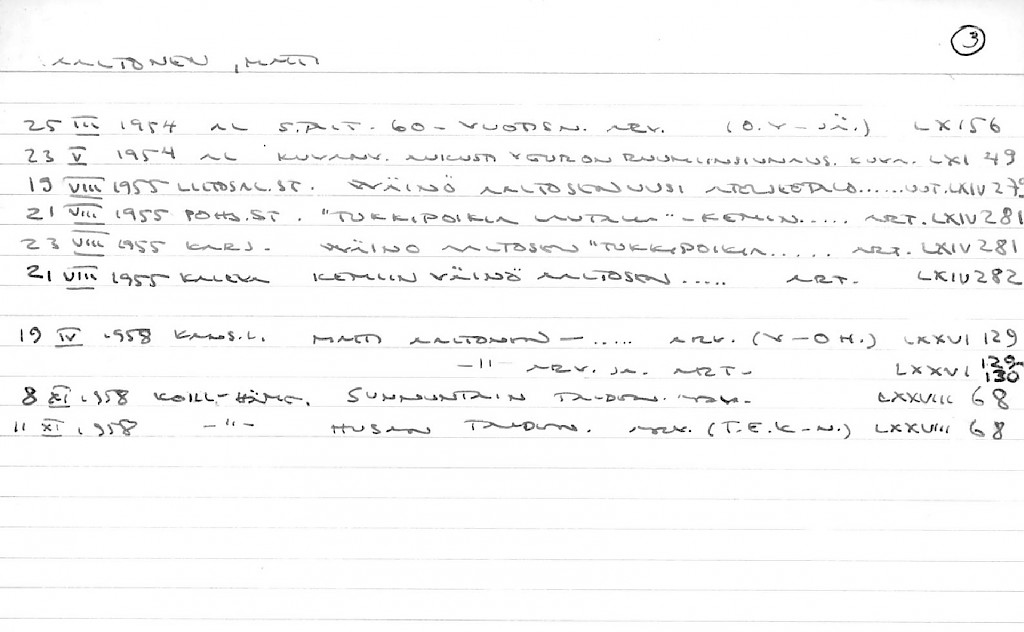 3
AALTONEN, MATTI
25 III 1954 AL S.TAIT. 60-VUOTISN. ARV. (O.V-JÄ.) LXI 56
23 V 1954 AL KUVANV. RUUMIINSIUNAUS. KUVA. LXI 49
19 VIII 1955 ST. WÄINÖ AALTOSEN UUSI ATELJEETALO...... UUT. LXIV 279
21 VIII 1955 POHJ.ST. "TUKKIPOIKIA LAUTALLA" - KEMIN..... ART. LXIV 281
23 VIII 1955 KARJ. WÄINÖ AALTOSEN "TUKKIPOIKIA ...... ART. LXIV 281
21 VIII 1955 KALEVA KEMIIN VÄINÖ AALTOSEN ..... ART. LXIV 282
19 IV 1958 KANS.L. MATTI AALTONEN - ..... ARV. (V-OH.) LXXVI 129
-"- ARV. JA ART. LXXVI 129-130
8 XI 1958 KOILL-HÄME. SUNNUNTAIN LXXVIII 68
11 XI 1958 -"- ARV. (T.E.K-N.) LXXVIII 68